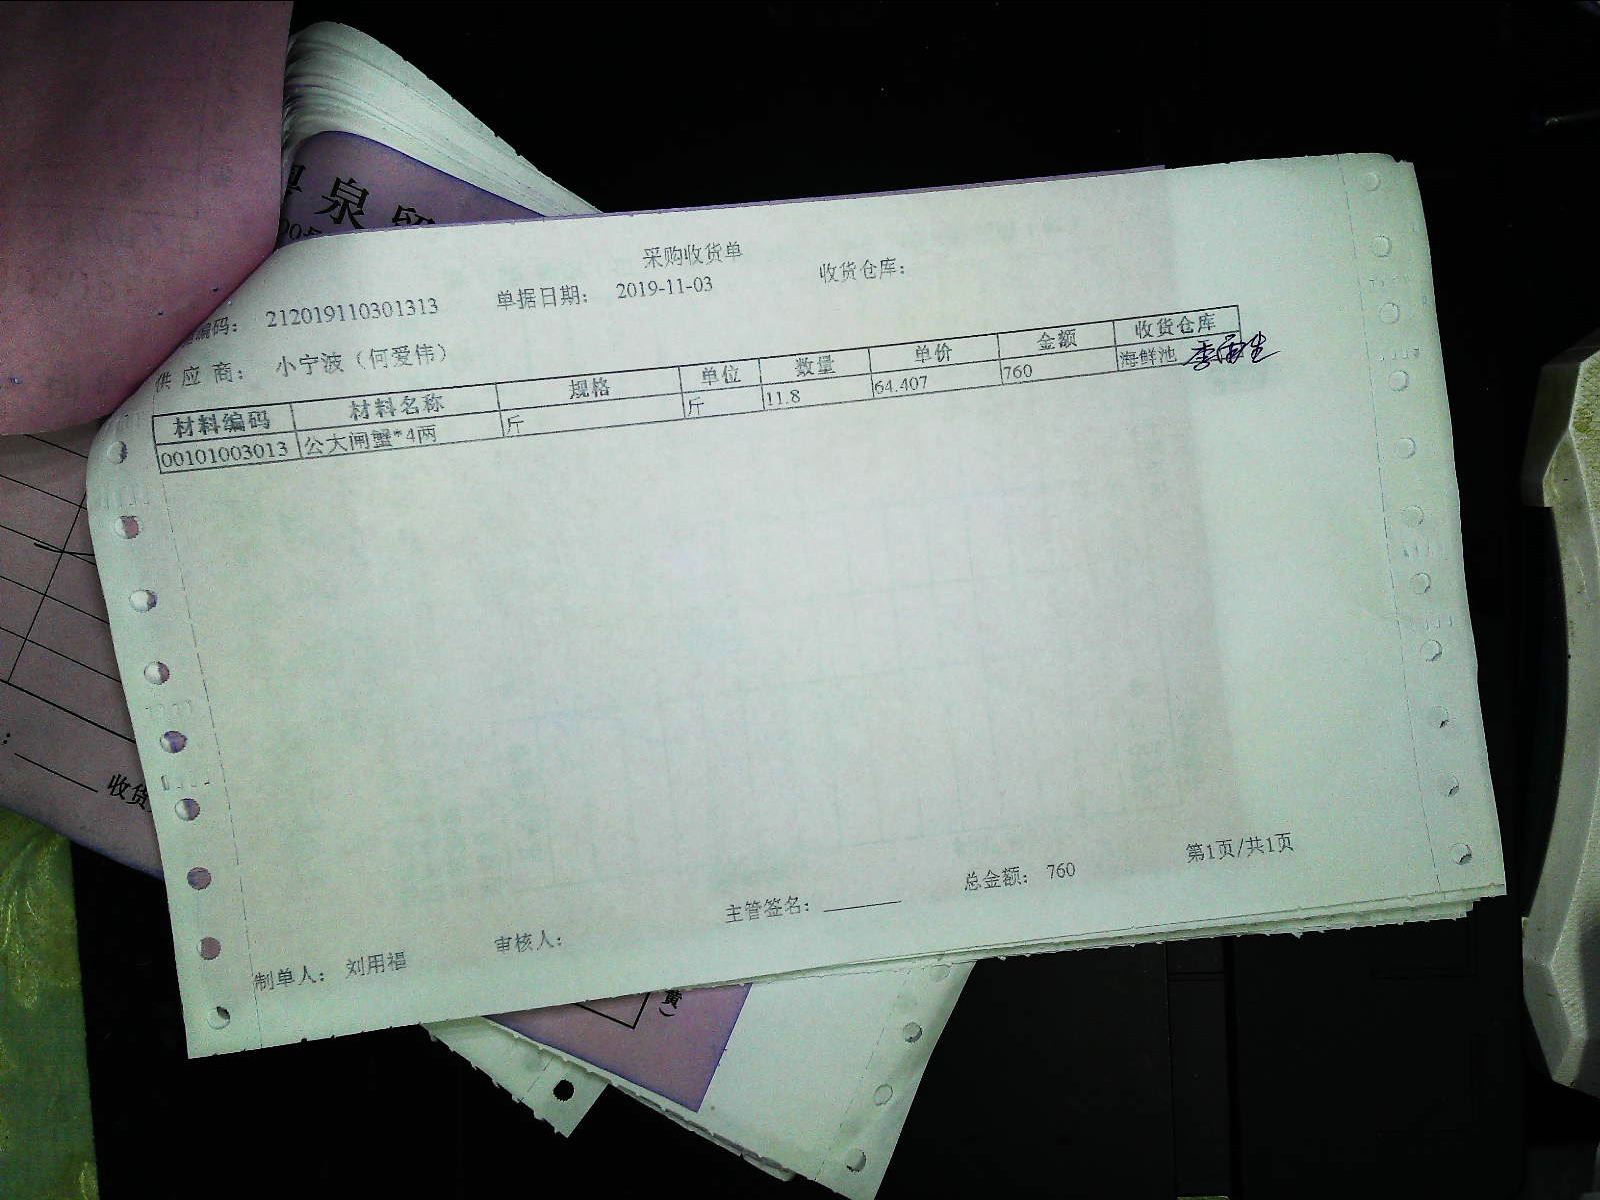 泉
采购收货单
编码： 212019110301313 单据日期： 2019-11-03 收货仓库：
供应商： 小宁波（何爱伟）
材料编码 材料名称 规格 单位 数量 单价 金额 收货仓库
00101003013 公大闸蟹*4两 斤 斤 11.8 64.407 760 海鲜池
收货
主管签名： 总金额： 760 第1页/共1页
制单人： 刘用福 审核人：
黄）